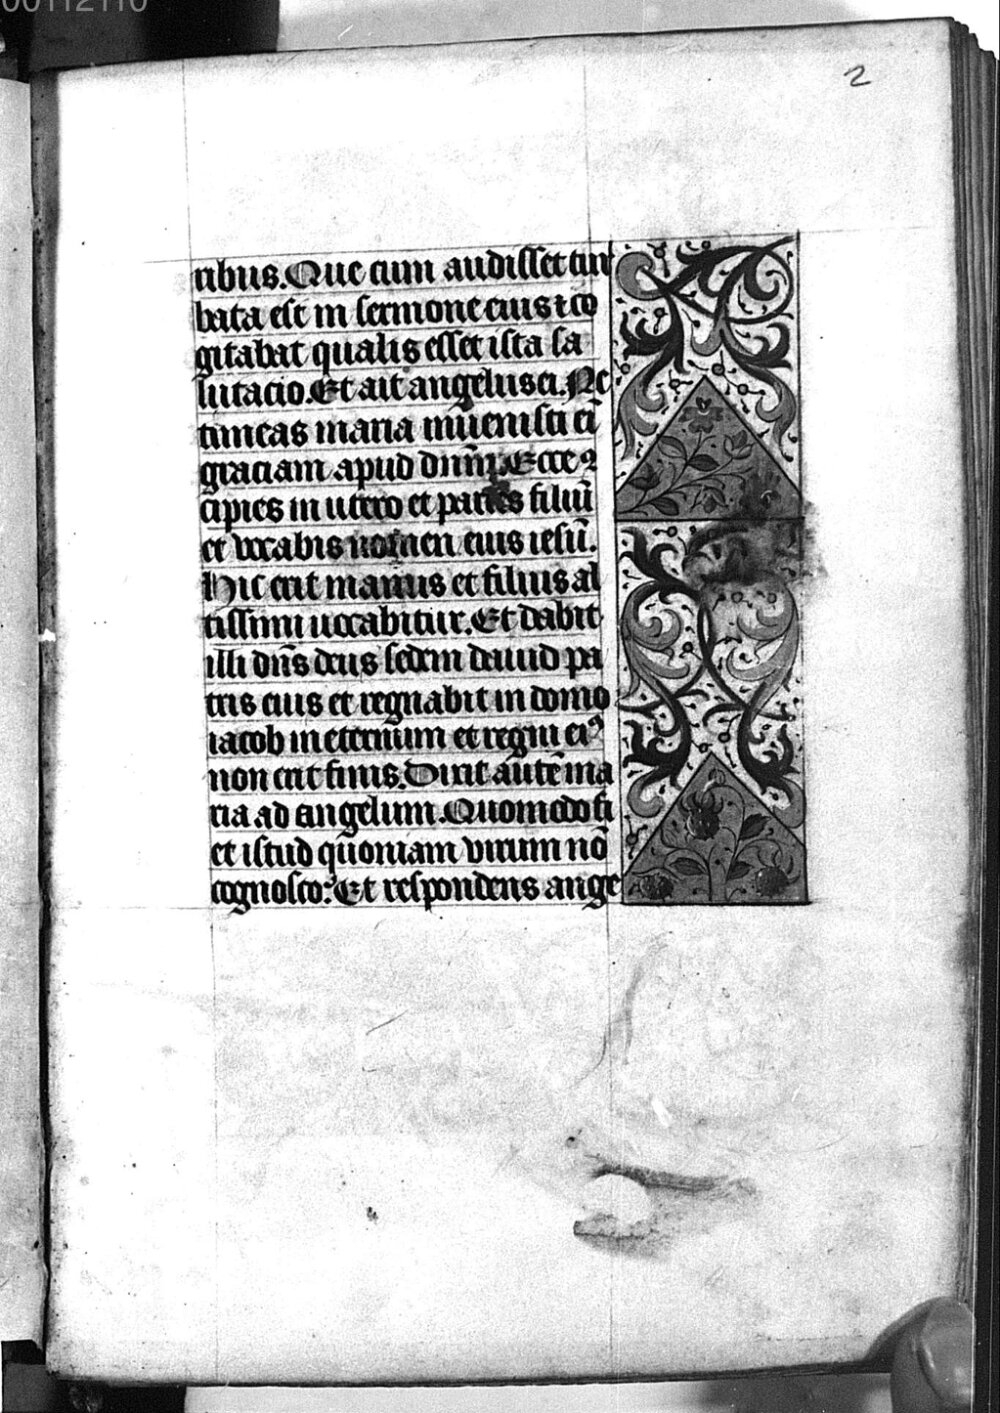 00112110
2
ribus. Que cum audisset tur
bata est in sermone eius ⁊ co
gitabat qualis esset ista sa
lutacio. Et ait angelus ei. Ne
timeas maria inuenisti em̄
graciam apud dnm̄. Ecce ꝯ
cipies in utero et paries filiū
et vocabis nomen eius iesū.
Hic erit magnus et filius al
tissimi uocabitur. Et dabit
illi dn̄s deus sedem dauid pa
tris eius et regnabit in domo
iacob in eternum et regni eiꝰ
non erit finis. Dixit autē ma
ria ad angelum. Quomodo fi
et istud quoniam virum nō
cognosco? Et respondens ange